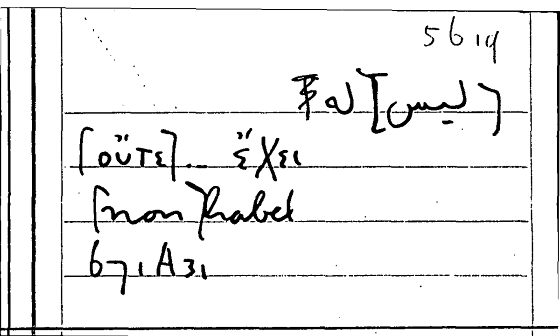 56,14
[ليس] له
[οὔτε]... ἔχει
[non] habet
671A31